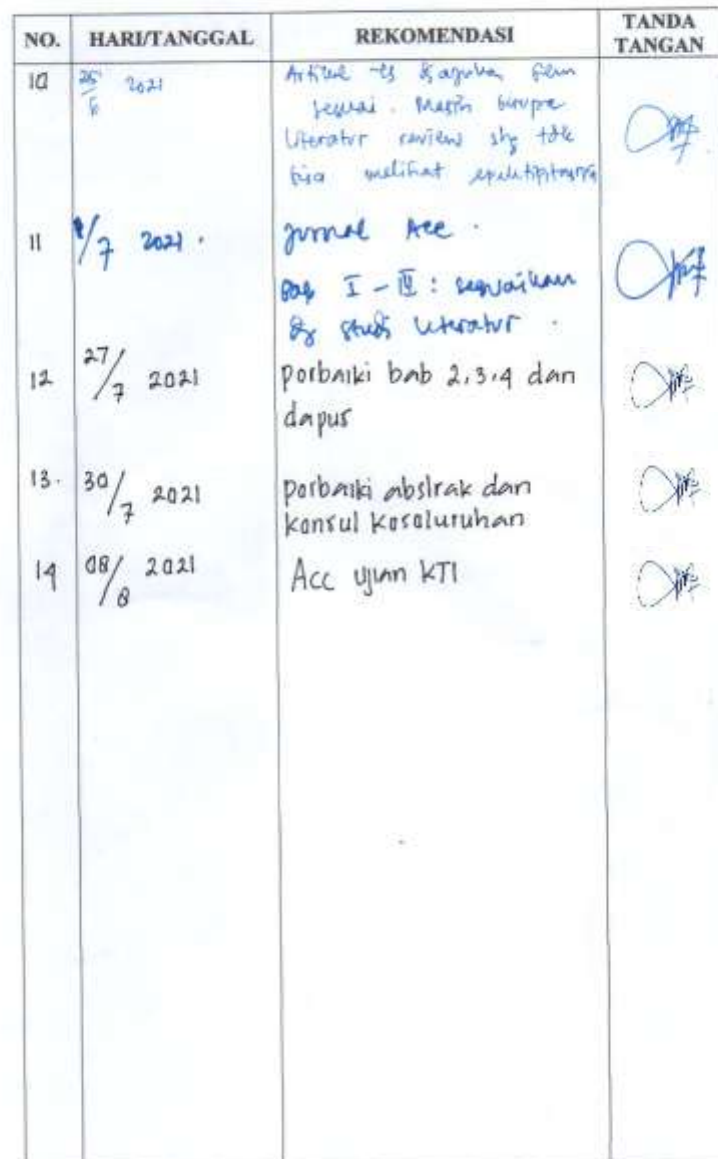 NO. HARI/TANGGAL REKOMENDASI TANDA TANGAN
10 25/6 2021 Artikel yg diajukan blm
sesuai. Masih berupa
literatur review shg tdk
bisa melihat
11 1/7 2021. Jurnal Acc.
Bab I - : sesuaikan
dg studi literatur.
12 27/7 2021 porbaiki bab 2,3,4 dan
dapus
13. 30/7 2021 porbaiki abstrak dan
konsul kosoluruhan
14 08/8 2021 Acc ujian KTI